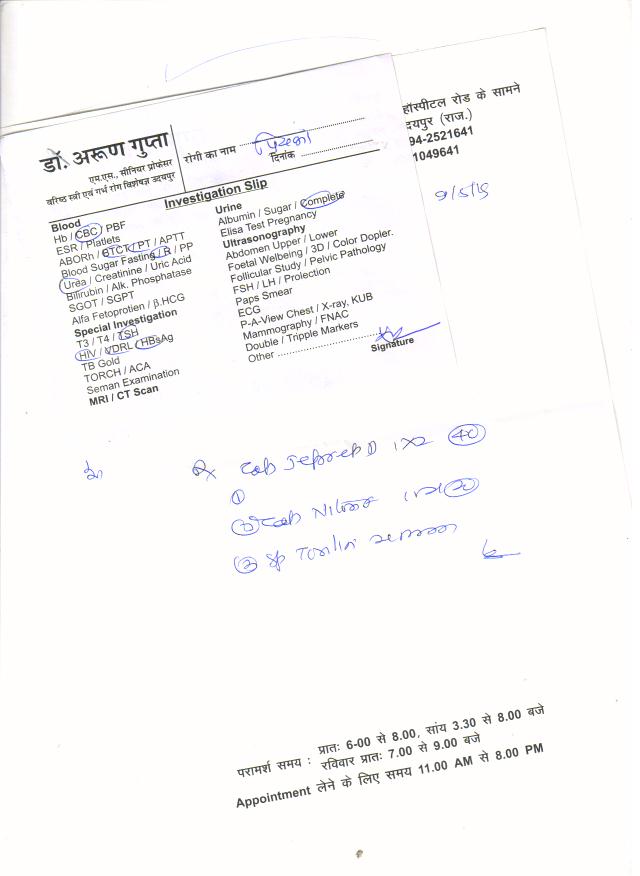 हॉस्पीटल रोड के सामने
दयपुर (राज.)
94-2521641
1049641
9/5/15
डॉ. अरूण गुप्ता
एम.एस., सीनियर प्रोफेसर
वरिष्ठ स्त्री एवं गर्भ रोग विशेषज्ञ उदयपुर
रोगी का नाम
दिनांक
Investigation Slip
Blood
Hb / CBC / PBF
ESR / Platlets
ABORh / BTCT / PT / APTT
Blood Sugar Fasting / R / PP
Urea / Creatinine / Uric Acid
Bilirubin / Alk. Phosphatase
SGOT / SGPT
Alfa Fetoprotien / β.HCG
Special Investigation
T3 / T4 / TSH
HIV / VDRL / HBsAg
TB Gold
TORCH / ACA
Seman Examination
MRI / CT Scan
Urine
Albumin / Sugar / Complete
Elisa Test Pregnancy
Ultrasonography
Abdomen Upper / Lower
Foetal Welbeing / 3D / Color Dopler.
Follicular Study / Pelvic Pathology
FSH / LH / Prolection
Paps Smear
ECG
P-A-View Chest / X-ray, KUB
Mammography / FNAC
Double / Tripple Markers
Other
Signature
Rx Tab 1x2 40
①
② Tab 20
③ Sp
परामर्श समय : प्रातः 6-00 से 8.00, सांय 3.30 से 8.00 बजे
रविवार प्रातः 7.00 से 9.00 बजे
Appointment लेने के लिए समय 11.00 AM से 8.00 PM